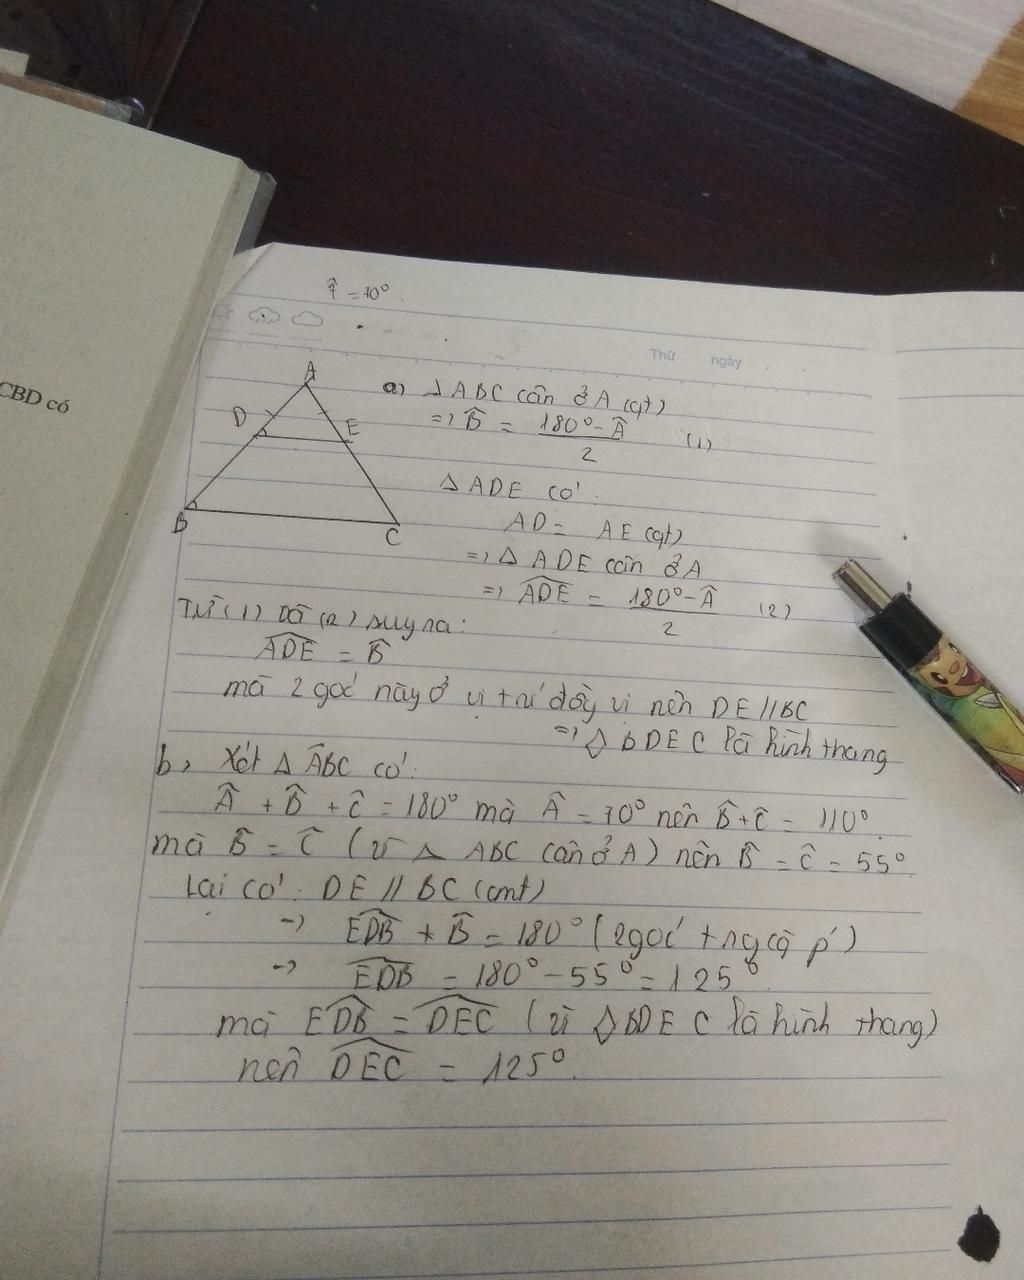 CBD có
= 70°
Thứ ngày
A
D
E
B
C
a) △ABC cân ở A (gt)
=> B̂ = (180° - Â)/2 (1)
△ADE có:
AD = AE (gt)
=> △ADE cân ở A
=> ADÊ = (180° - Â)/2 (2)
Từ (1) và (2) suy ra:
ADÊ = B̂
mà 2 góc này ở vị trí đồng vị nên DE // BC
=> ◇BDEC là hình thang
b, Xét △ABC có:
Â + B̂ + Ĉ = 180° mà Â = 70° nên B̂ + Ĉ = 110°
mà B̂ = Ĉ (vì △ABC cân ở A) nên B̂ = Ĉ = 55°
Lại có: DE // BC (cmt)
=> EDB̂ + B̂ = 180° (2 góc trng cg p')
=> EDB̂ = 180° - 55° = 125°
mà EDB̂ = DEĈ (vì ◇BDEC là hình thang)
nên DEĈ = 125°.